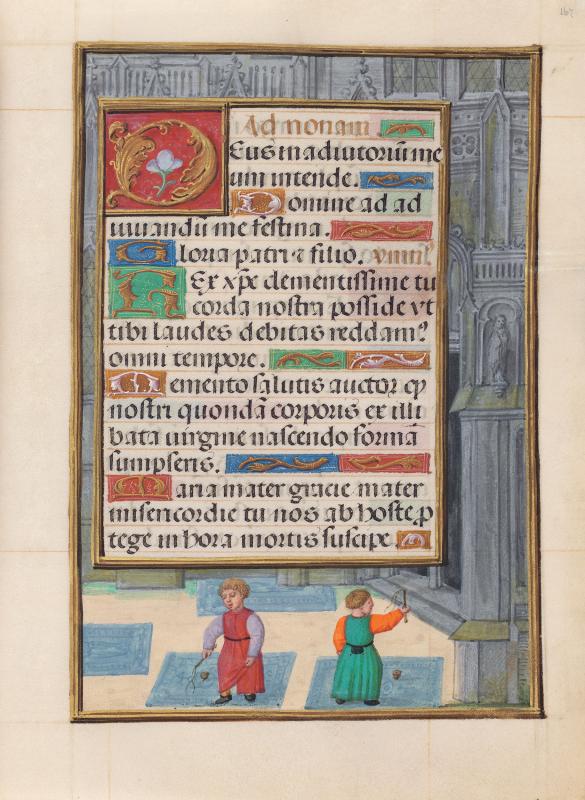 167
Ad nonam.
Deus in adiutoriū me
um intende.
Domine ad ad
iuuandū me festina.
Gloria patri ⁊ filio. ymn͛.
Rex xp̄e clementissime tu
corda nostra posside vt
tibi laudes debitas reddamꝰ
omni tempore.
Memento salutis auctor qͥ
nostri quondā corporis ex illi
bata uirgine nascendo formā
sumpseris.
Maria mater gracie mater
misericordie tu nos ab hoste ꝓ
tege in hora mortis suscipe.